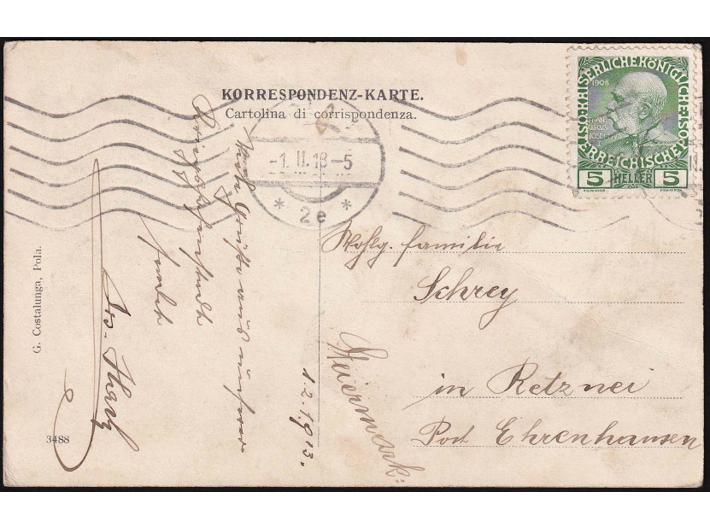 KORRESPONDENZ-KARTE.
Cartolina di corrispondenza.
KAISERLICHE KÖNIGLICHE
1908
ÖSTERREICHISCHE
5 HELLER 5
-1.II.13-5
* 2e *
1.2.1913.
Grüße aus unserer
sendet
Wohlg. Familie
Schrey
in Retznei
Post Ehrenhausen
Steiermark.
G. Costalunga, Pola.
3488